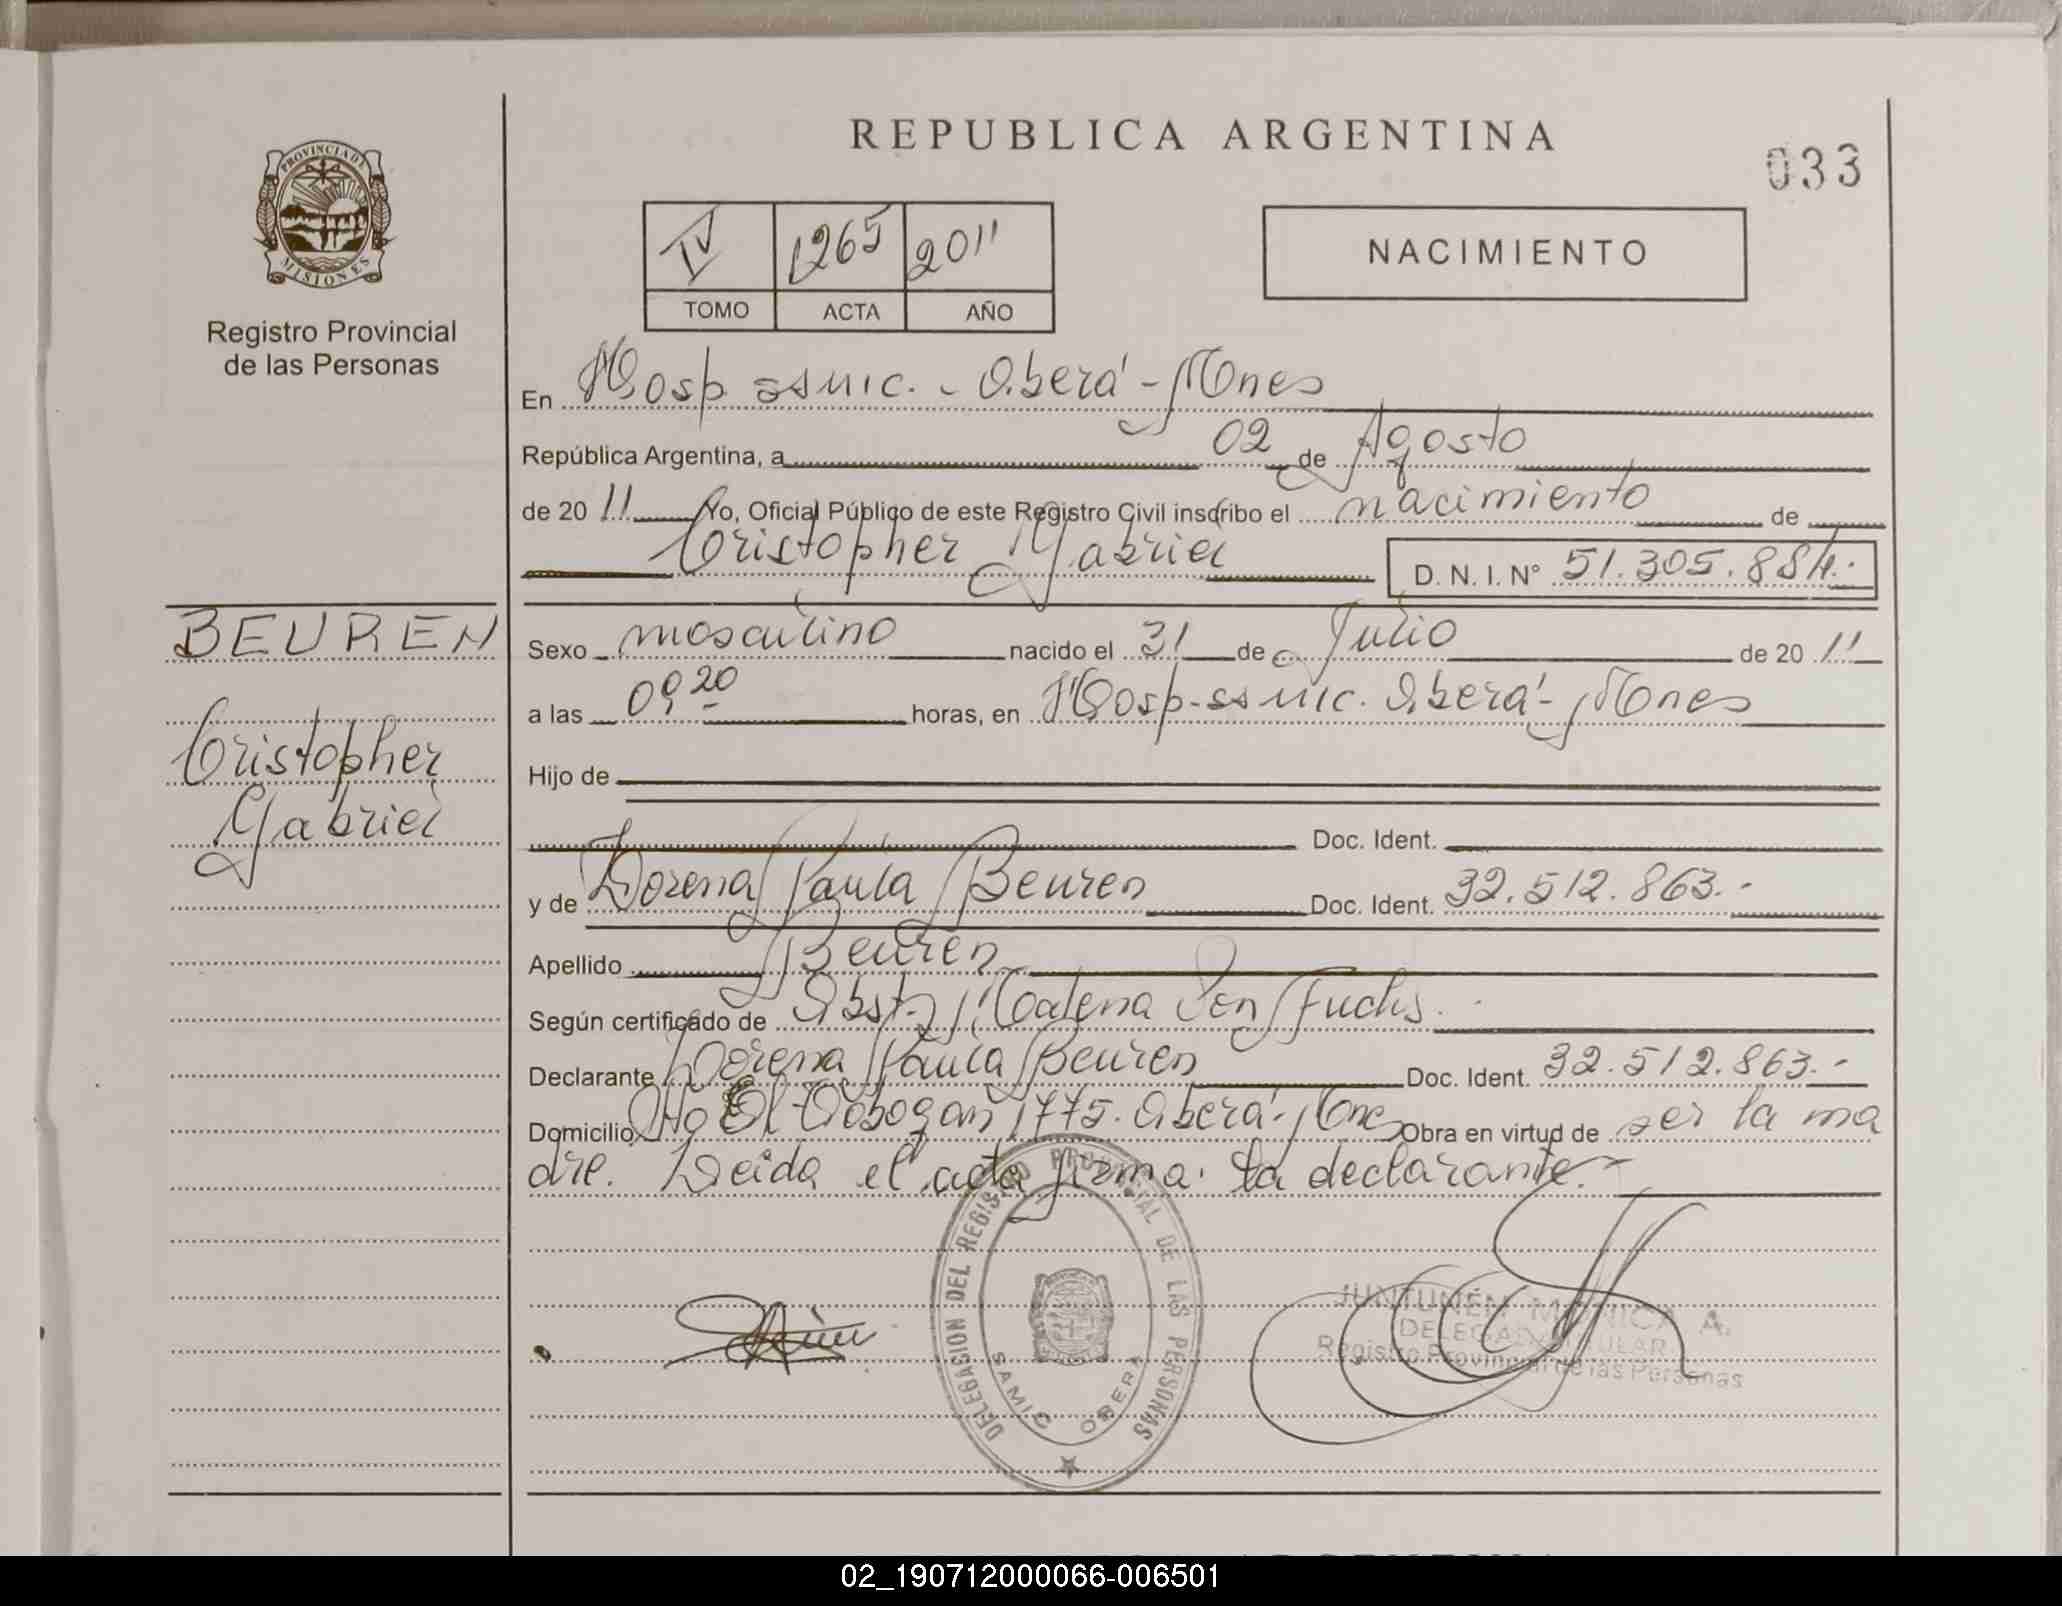 REPUBLICA ARGENTINA
033
PROVINCIA DE
MISIONES
Registro Provincial
de las Personas
IV 1265 2011
TOMO ACTA AÑO
NACIMIENTO
En Hosp ssmic. - Oberá - Mnes
República Argentina, a 02 de Agosto
de 2011 Yo, Oficial Público de este Registro Civil inscribo el nacimiento de
Cristopher Gabriel D. N. I. N° 51.305.884.-
BEUREN
Cristopher
Gabriel
Sexo masculino nacido el 31 de Julio de 2011
a las 09 20 horas, en Hosp-ssmic. Oberá - Mnes
Hijo de
Doc. Ident.
y de Lorena Paula Beuren Doc. Ident. 32.512.863.-
Apellido Beuren
Según certificado de Obst. Fuchs.
Declarante Lorena Paula Beuren Doc. Ident. 32.512.863.-
Domicilio El 1775. Oberá - Mnes Obra en virtud de ser la ma
dre. Leida el acta firma la declarante.-
DELEGASION DEL REGISTRO PROVINCIAL DE LAS PERSONAS
SAMIC OBERA
JUNTUNEN MONICA A.
DELEGADA TITULAR
Registro Provincial de las Personas
02_190712000066-006501